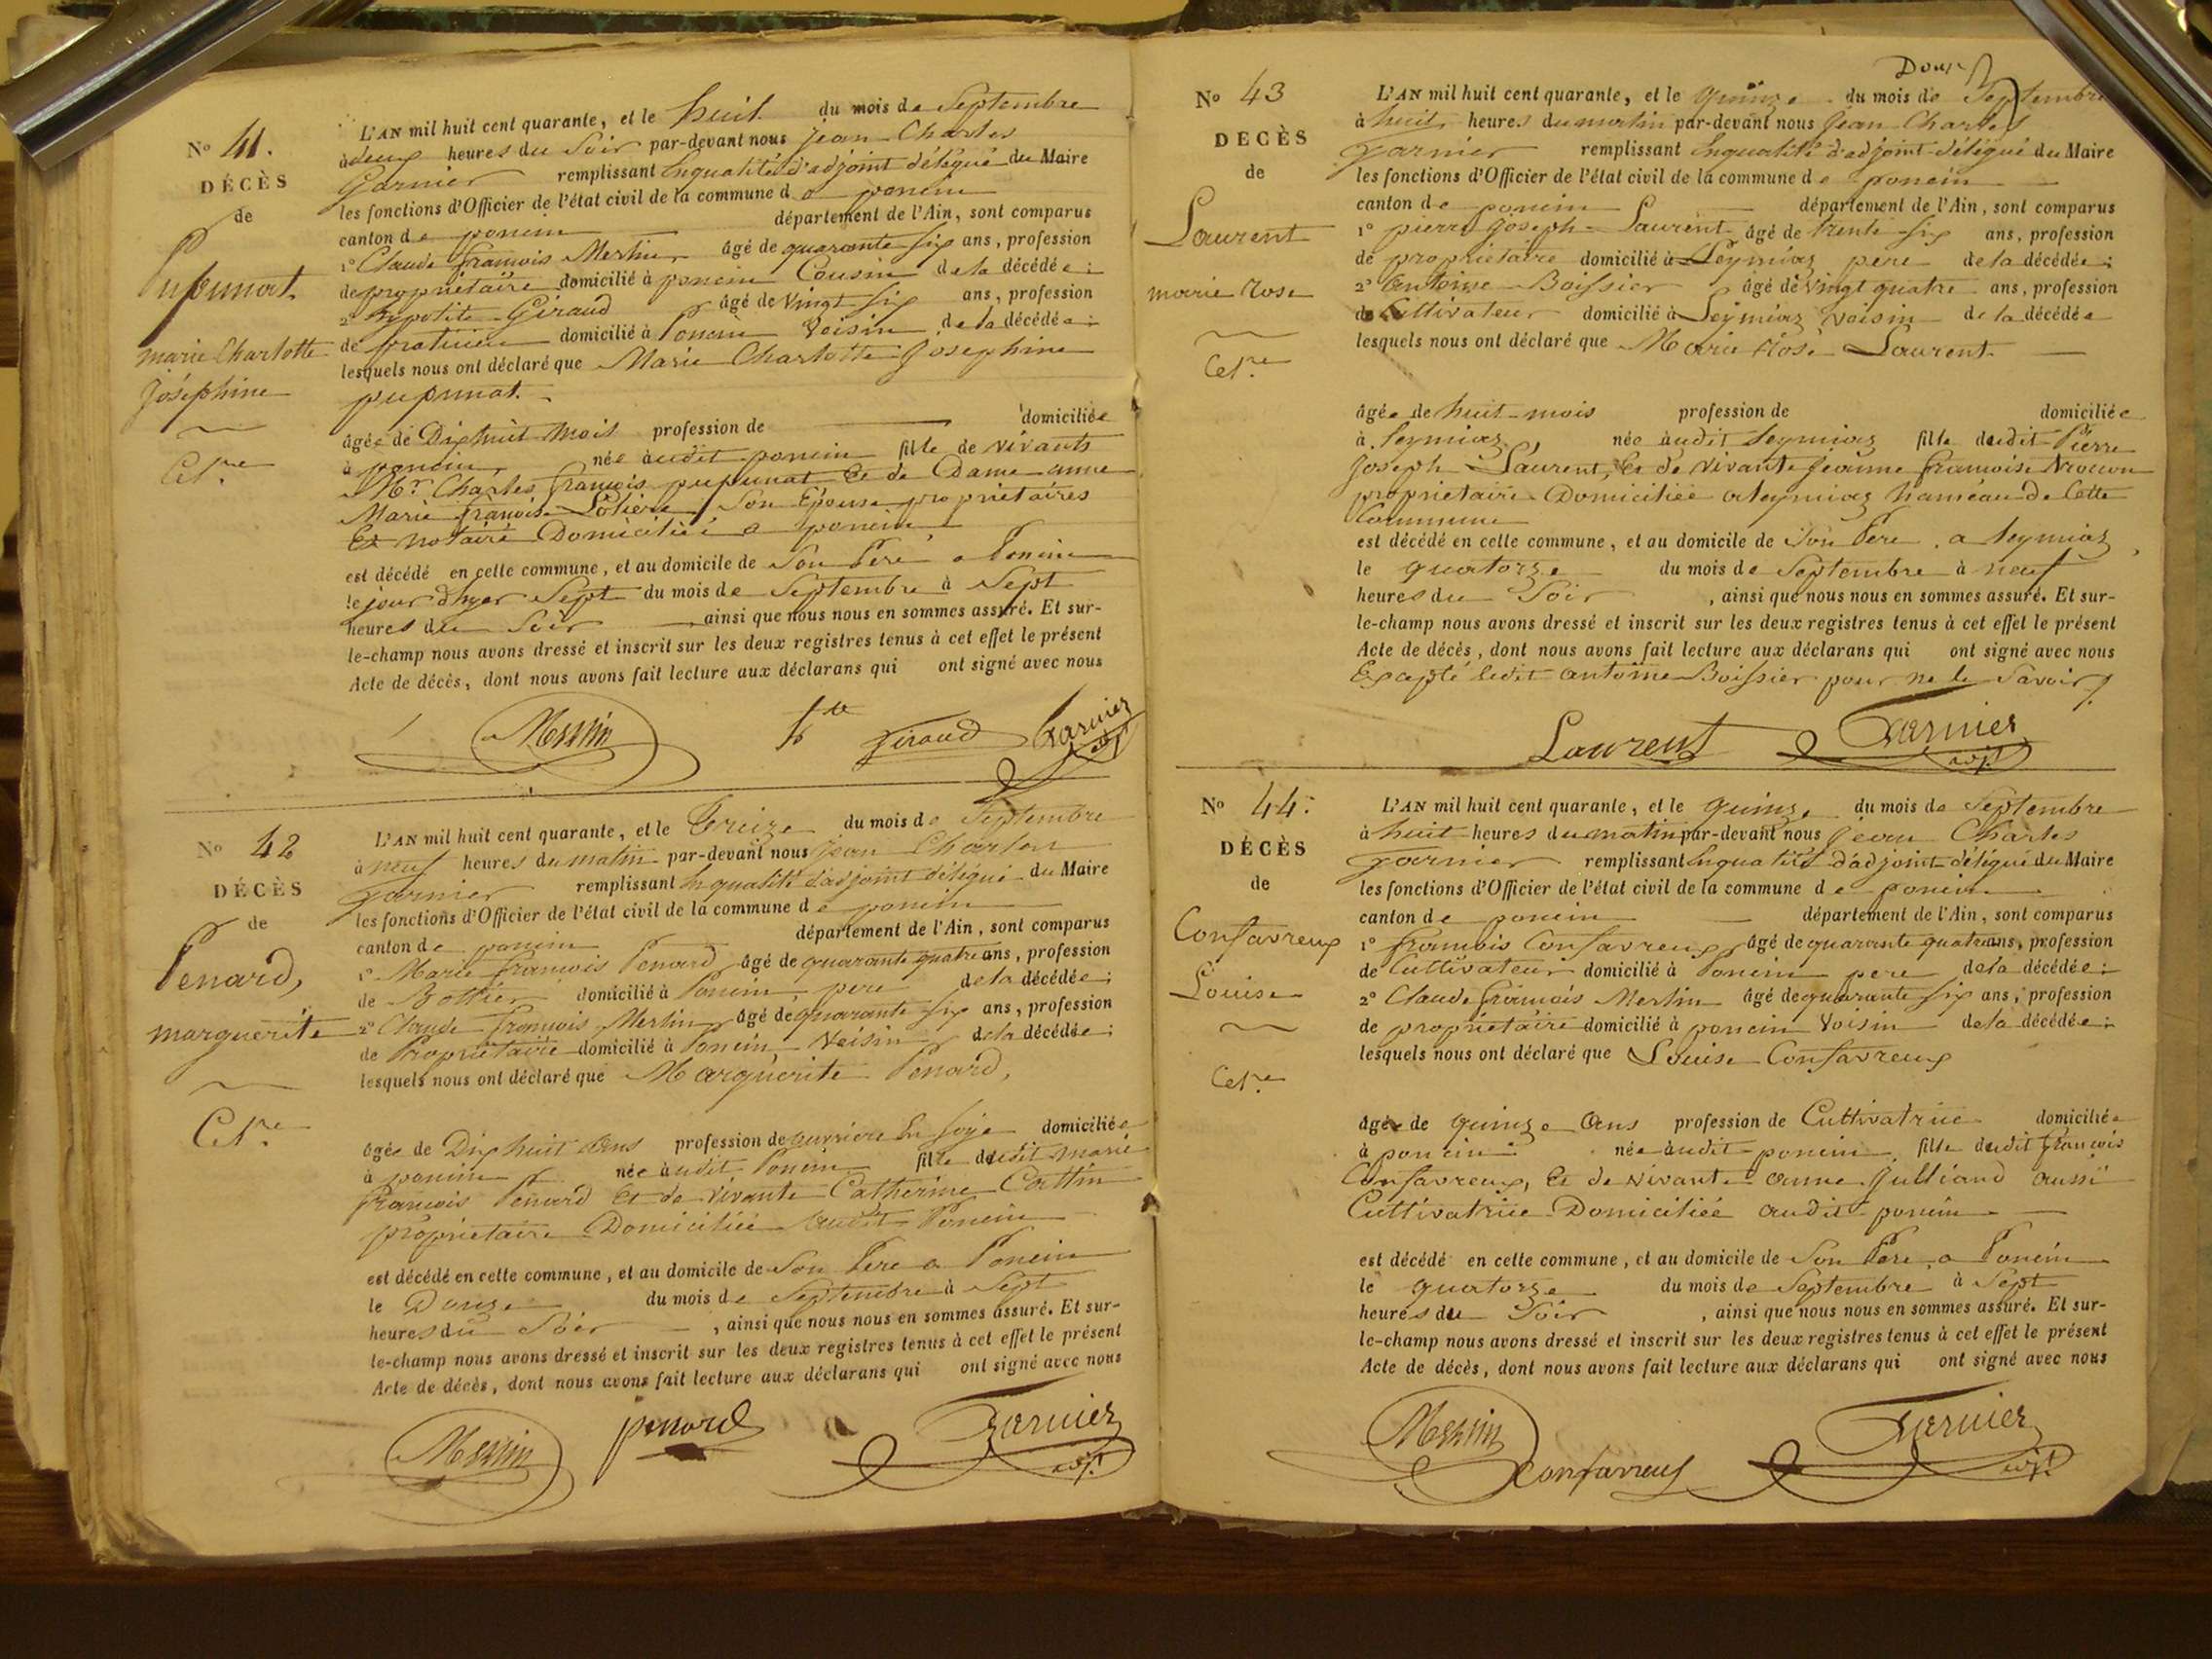 N° 41.
DÉCÈS
de
Pupunat
marie Charlotte
Joséphine
Cel.re
L'AN mil huit cent quarante, et le huit du mois de Septembre
à deux heures du Soir par-devant nous Jean Charles
Garnier remplissant En qualité d'adjoint délégué du Maire
les fonctions d'Officier de l'état civil de la commune de poncin
canton de poncin département de l'Ain, sont comparus
1° Claude françois Merlin âgé de quarante six ans, profession
de propriétaire domicilié à poncin Cousin de la décédée;
2° hypolite Giraud âgé de Vingt six ans, profession
de praticien domicilié à Poncin Voisin de la décédée;
lesquels nous ont déclaré que Marie Charlotte Josephine
pupunat.
âgée de Dix huit Mois profession de domiciliée
à poncin, née audit poncin fille de vivants
Mr. Charles françois pupunat Et de Dame anne
Marie françoise Son Epouse propriétaires
Et notaire Domiciliés a poncin
est décédé en celle commune, et au domicile de Son Père a Poncin
le jour d'hyer Sept du mois de Septembre à Sept
heures du Soir ainsi que nous nous en sommes assuré. Et sur-
le-champ nous avons dressé et inscrit sur les deux registres tenus à cet effet le présent
Acte de décès, dont nous avons fait lecture aux déclarans qui ont signé avec nous
Merlin Giraud Garnier adjt
N° 42
DÉCÈS
de
Penard,
marguerite
Cel.re
L'AN mil huit cent quarante, et le Treize du mois de Septembre
à neuf heures du matin par-devant nous Jean Charles
garnier remplissant En qualité d'adjoint délégué du Maire
les fonctions d'Officier de l'état civil de la commune de poncin
canton de poncin département de l'Ain, sont comparus
1° Marie françois Penard âgé de quarante quatre ans, profession
de Bottier domicilié à Poncin, pere de la décédée;
2° Claude françois Merlin âgé de quarante six ans, profession
de Propriétaire domicilié à Poncin, Voisin de la décédée;
lesquels nous ont déclaré que Marguerite Penard,
âgée de Dix huit ans profession de ouvrière En soye domiciliée
à poncin née audit Poncin fille dudit marie
françois Penard Et de vivante Catherine Cottin
propriétaire Domiciliée audit Poncin
est décédé en cette commune, et au domicile de Son Père a Poncin
le Douze du mois de Septembre à Sept
heures du Soir, ainsi que nous nous en sommes assuré. Et sur-
le-champ nous avons dressé et inscrit sur les deux registres tenus à cet effet le présent
Acte de décès, dont nous avons fait lecture aux déclarans qui ont signé avec nous
Merlin penard Garnier adjt
N° 43
DÉCÈS
de
Laurent
marie rose
Cel.re
L'AN mil huit cent quarante, et le quinze du mois de Septembre
à huit heures du matin par-devant nous Jean Charles
garnier remplissant En qualité d'adjoint délégué du Maire
les fonctions d'Officier de l'état civil de la commune de poncin
canton de poncin département de l'Ain, sont comparus
1° pierre Joseph Laurent âgé de trente six ans, profession
de propriétaire domicilié à Leymiaz pere de la décédée;
2° antoine Boissier âgé de vingt quatre ans, profession
de Cultivateur domicilié à Leymiaz voisin de la décédée
lesquels nous ont déclaré que Marie Rose Laurent
âgée de huit mois profession de domiciliée
à leymiaz, née audit leymiaz fille dudit Pierre
Joseph Laurent, Et de vivante Jeanne françoise
propriétaire Domiciliée a leymiaz hameau de Cette
Commune
est décédé en celle commune, et au domicile de Son Père a leymiaz
le quatorze du mois de Septembre à neuf
heures du Soir, ainsi que nous nous en sommes assuré. Et sur-
le-champ nous avons dressé et inscrit sur les deux registres tenus à cet effet le présent
Acte de décès, dont nous avons fait lecture aux déclarans qui ont signé avec nous
Excepté ledit antoine Boissier pour ne le Savoir.
Laurent Garnier adjt
N° 44.
DÉCÈS
de
Confavreux
Louise
Cel.re
L'AN mil huit cent quarante, et le quinze du mois de Septembre
à huit heures du matin par-devant nous Jean Charles
garnier remplissant En qualité d'adjoint délégué du Maire
les fonctions d'Officier de l'état civil de la commune de poncin
canton de poncin département de l'Ain, sont comparus
1° françois Confavreux âgé de quarante quatre ans, profession
de Cultivateur domicilié à Poncin pere de la décédée;
2° Claude françois Merlin âgé de quarante six ans, profession
de propriétaire domicilié à poncin Voisin de la décédée;
lesquels nous ont déclaré que Louise Confavreux
âgée de quinze ans profession de Cultivatrice domiciliée
à poncin née audit poncin, fille dudit françois
Confavreux, Et de vivante anne Julliand aussi
Cultivatrice Domiciliée audit poncin
est décédé en cette commune, et au domicile de Son Père a Poncin
le quatorze du mois de Septembre à Sept
heures du Soir, ainsi que nous nous en sommes assuré. Et sur-
le-champ nous avons dressé et inscrit sur les deux registres tenus à cet effet le présent
Acte de décès, dont nous avons fait lecture aux déclarans qui ont signé avec nous
Merlin Confavreux Garnier adjt